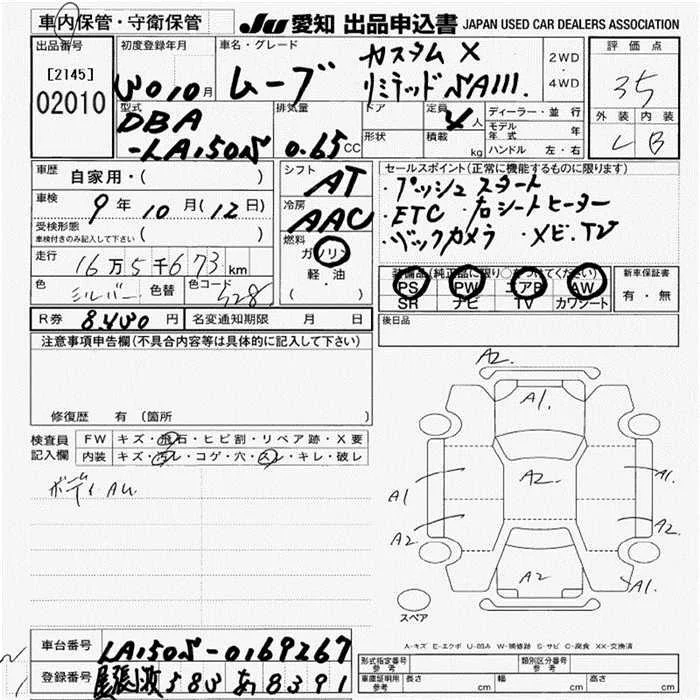 車内保管・守衛保管
JU 愛知 出品申込書 JAPAN USED CAR DEALERS ASSOCIATION
出品番号
[2145]
02010
初度登録年月
30 10 月
車名・グレード
ムーブ
カスタム X
リミテッド SAIII.
2WD
・
4WD
評価点
35
外装 内装
C B
型式
DBA
-LA150S
排気量
0.65 CC
ドア
形状
定員
4 人
積載
kg
ディーラー・並行
モデル年式 年
ハンドル 左・右
車歴
自家用・( )
車検
9年10月(12日)
受検形態
車検付きのみ記入して下さい ( )
走行
16万5千673 km
色
シルバー
色替
色コード
S28
シフト
AT
冷房
AAC
燃料
ガソリン
軽・油
( )
セールスポイント(正常に機能するものに限ります)
・プッシュスタート
・ETC ・右シートヒーター
・バックカメラ ・メモ.TV
装備品(純正品に限り○をつけてください)
PS PW エアB AW
SR ナビ TV カワシート
新車保証書
有・無
R券 8.430 円
名変通知期限 月 日
後日品
注意事項申告欄(不具合内容等は具体的に記入して下さい)
修復歴 有 (箇所
検査員
記入欄
FW キズ・飛石・ヒビ割・リペア跡・X要
内装 キズ・汚レ・コゲ・穴・スレ・キレ・破レ
ボディAU.
A2
A1.
A2
A1
A1.
A2
A2
A2
A1.
スペア
A-キズ E-エクボ U-凹み W-補修跡 S-サビ C-腐食 XX-交換済
車台番号 LA150S-0169267
登録番号 583 あ 8391
形式指定番号
参考
類別区分番号
参考
車庫証明用
参考
長さ cm
幅 cm
高さ cm